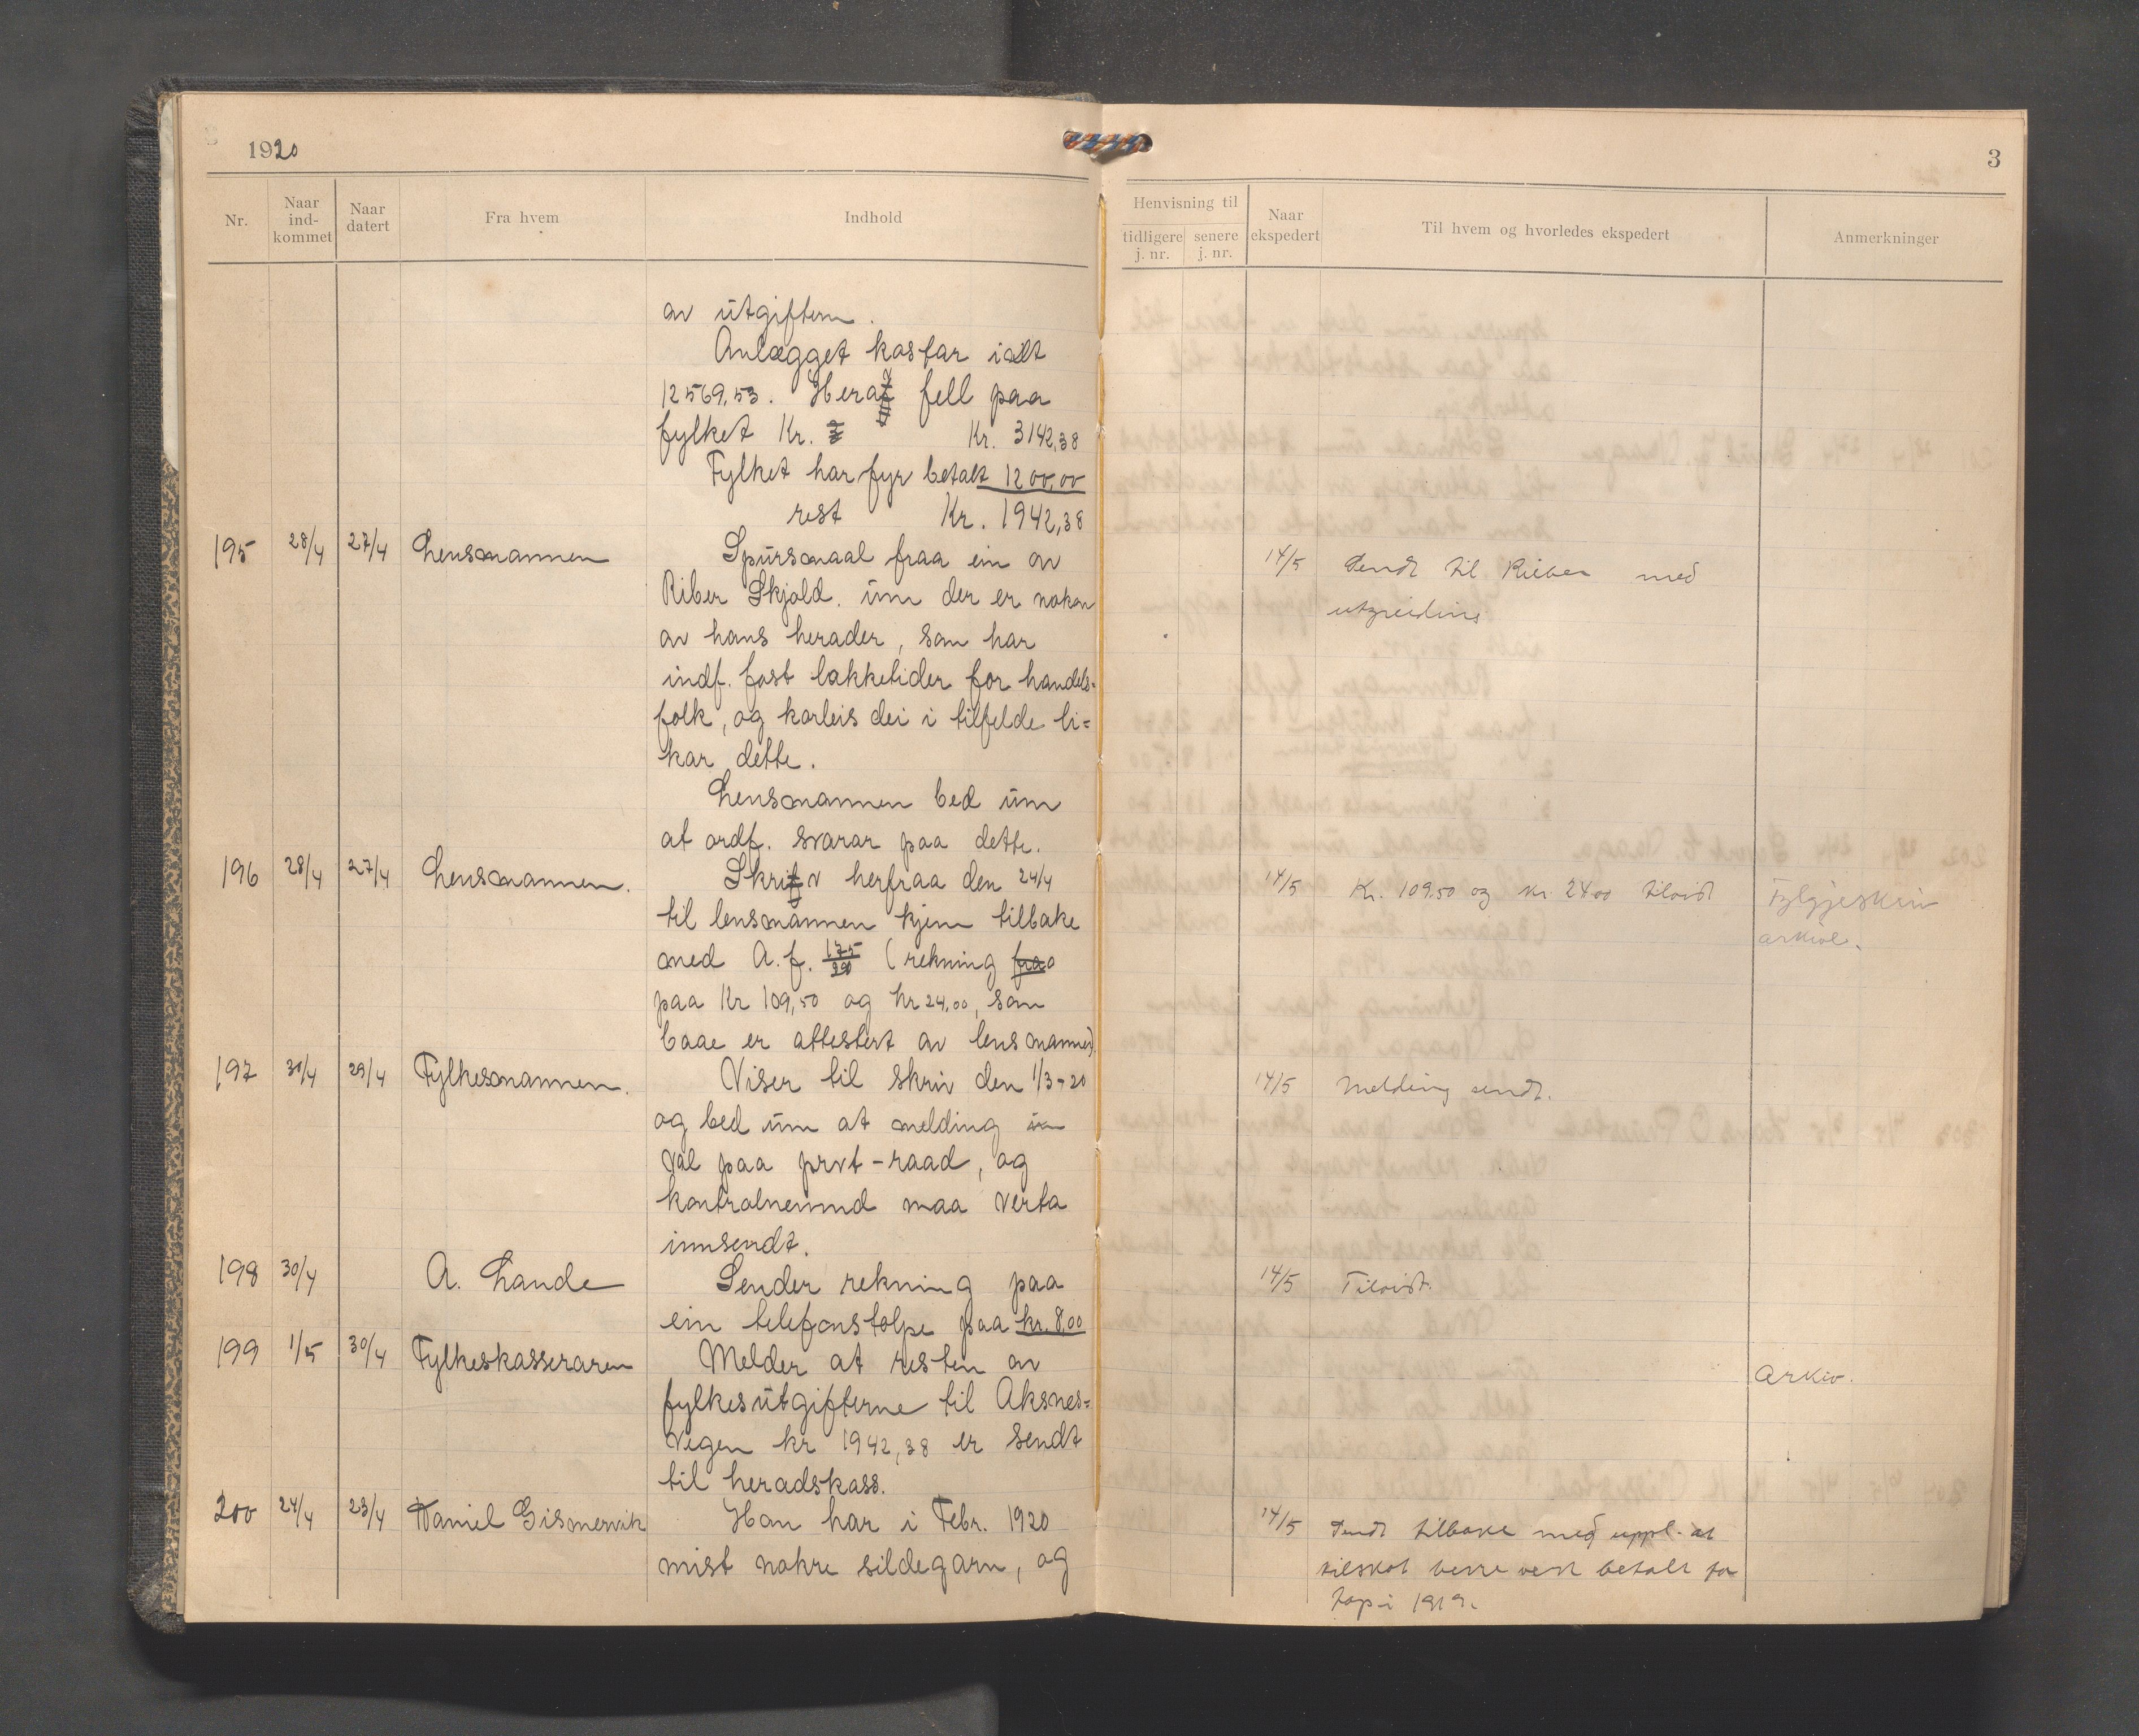 1920
3
Nr.
Naar ind-kommet
Naar datert
Fra hvem
Indhold
Henvisning til
tidligere j. nr.
senere j. nr.
Naar ekspedert
Til hvem og hvorledes ekspedert
Anmerkninger
av utgiftern.
Anlægget kostar ialt
12569,53. Herav fell paa
fylket Kr. Kr. 3142,38
Fylket har fyr betalt 1200,00
rest Kr. 1942,38
195 28/4 27/4 Lensmannen Spursmaal fraa ein av 14/5 Sendt til Rieber med
Riber Skjold. um der er nokon utgreiding
av hans herader, som har
indf. fast lukketider for handels-
folk, og korleis dei i tilfelde li=
kar dette.
Lensmannen bed um
at ordf. svarar paa dette.
196 28/4 27/4 Lensmannen. Skriv herfraa den 24/4 14/5 Kr. 109.50 og kr. 24.00 tilvist Fylgjeskriv
til lensmannen kjem tilbake arkivl.
med A.f. 175/20 (rekning fraa
paa Kr 109,50 og kr 24,00, som
baae er attestert av lensmannen)
197 30/4 29/4 Fylkesmannen. Viser til skriv den 1/3-20 14/5 Melding sendt.
og bed um at melding um
val paa prvt-raad, og
kontrolnemnd maa verta
innsendt.
198 30/4 A. Lande Sender rekning paa 14/5 Tilvist.
ein telefonstolpe paa kr. 8,00
199 1/5 30/4 Fylkeskasseraren Melder at resten av Arkiv.
fylkesutgifterne til Aksnes=
vegen kr 1942,38 er sendt
til heradskass.
200 24/4 23/4 Daniel Gismervik Han har i Febr. 1920 14/5 Sendt tilbake med uppl. at
mist nokre sildegarn, og tilskot berre vert betalt for
tap i 1919.